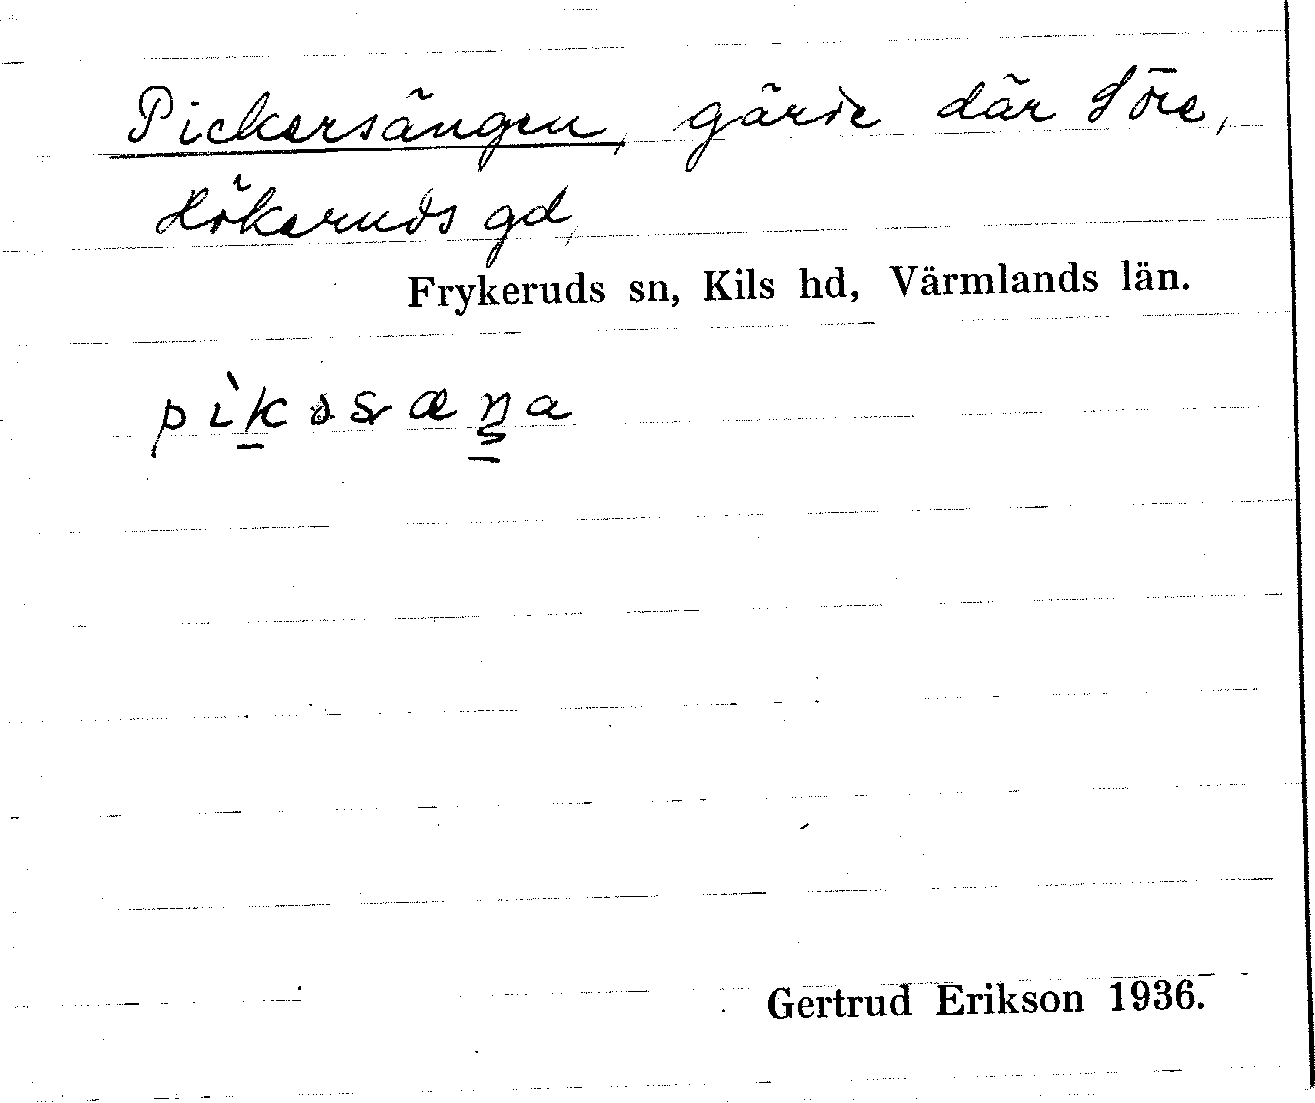 Pickersängen, gärde där Söre,
Hökeruds gd,
Frykeruds sn, Kils hd, Värmlands län.
Gertrud Erikson 1936.